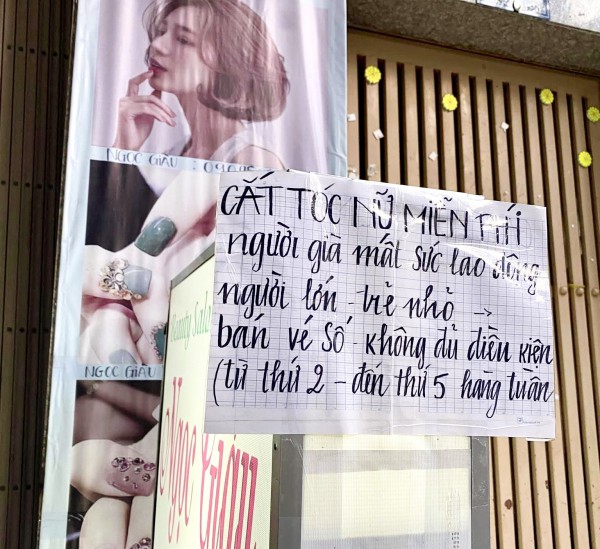 NGỌC GIÀU :
CẮT TÓC NỮ MIỄN PHÍ
người già mất sức lao động
người lớn - trẻ nhỏ →
bán vé số - không đủ điều kiện
(từ thứ 2 - đến thứ 5 hàng tuần
Beauty Salon
NGỌC GIÀU
Ngọc Giàu